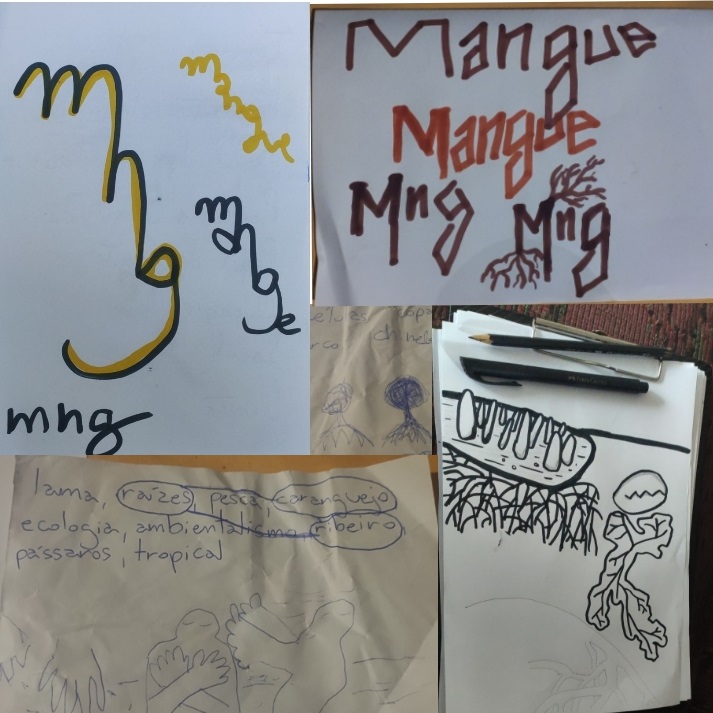 mng
mangue
mangue
mng
Mangue
Mangue
Mng
Mng
copa
lama, raízes, pesca, caranguejo
ecologia, ambientalismo, ribeiro
pássaros, tropical